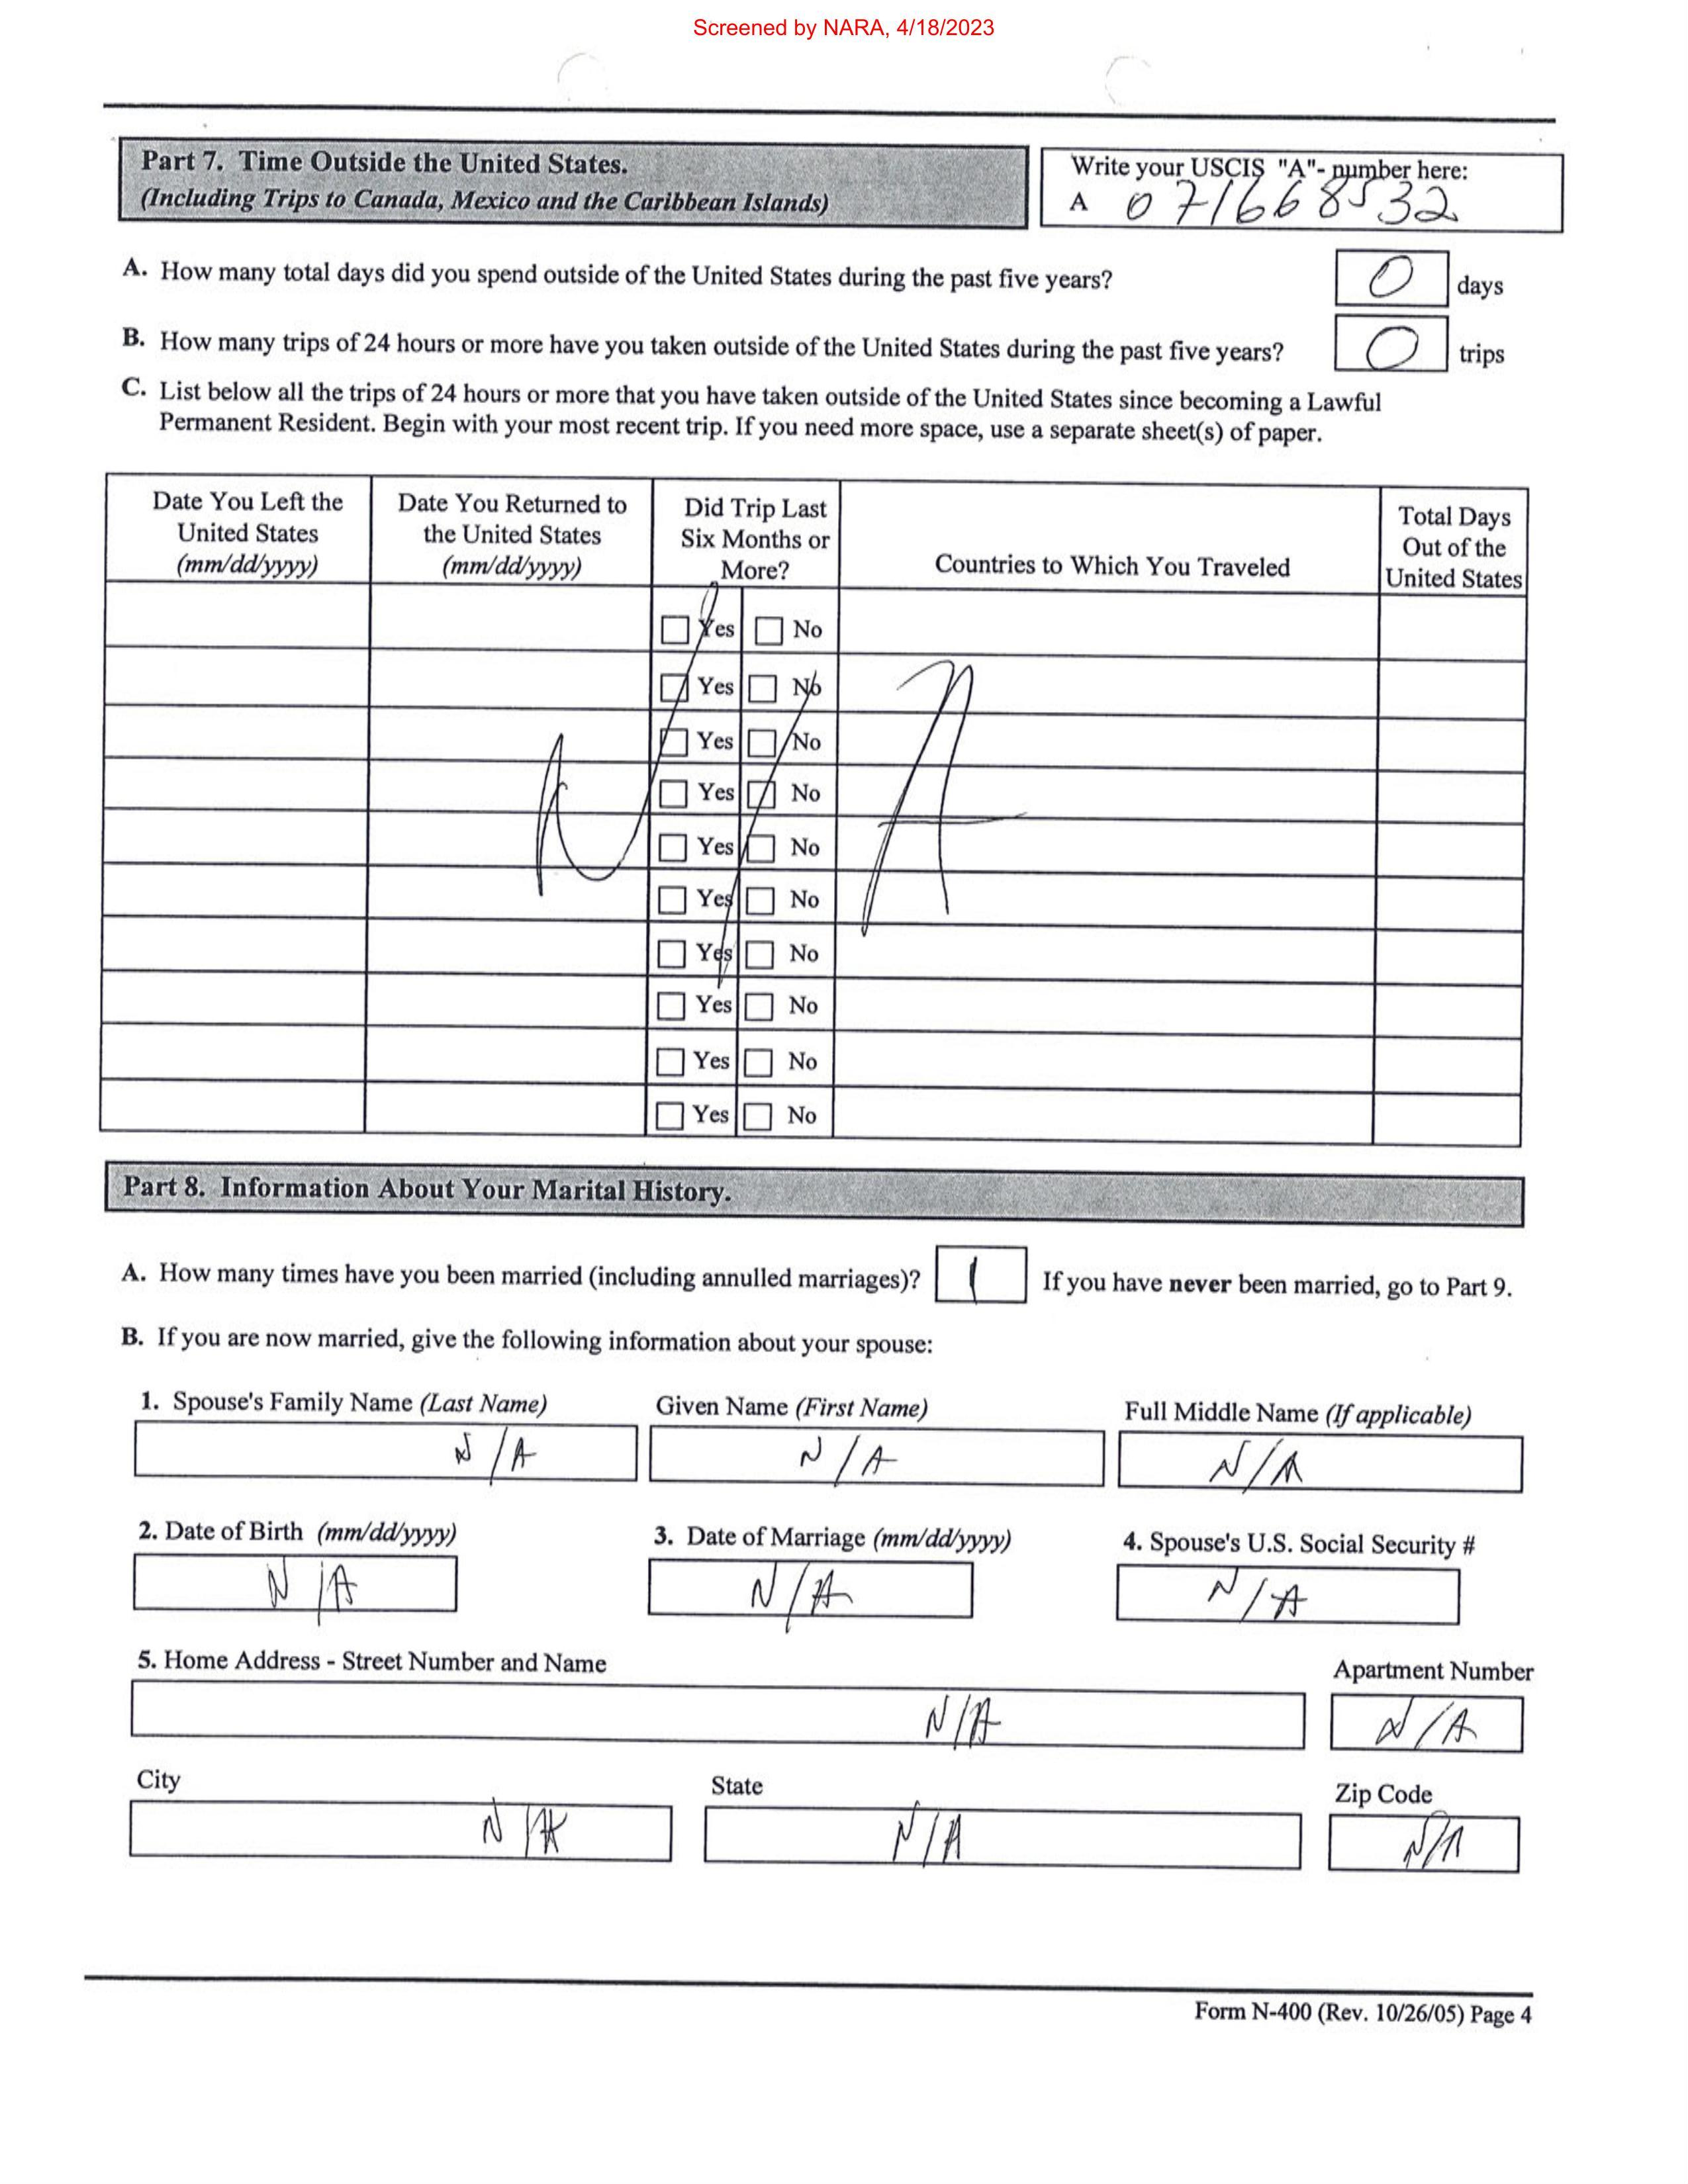 Screened by NARA, 4/18/2023
Part 7. Time Outside the United States.
(Including Trips to Canada, Mexico and the Caribbean Islands)
Write your USCIS "A"- number here:
A 071668532
A. How many total days did you spend outside of the United States during the past five years? 0 days
B. How many trips of 24 hours or more have you taken outside of the United States during the past five years? 0 trips
C. List below all the trips of 24 hours or more that you have taken outside of the United States since becoming a Lawful
Permanent Resident. Begin with your most recent trip. If you need more space, use a separate sheet(s) of paper.
Date You Left the
United States
(mm/dd/yyyy)
Date You Returned to
the United States
(mm/dd/yyyy)
Did Trip Last
Six Months or
More?
Countries to Which You Traveled
Total Days
Out of the
United States
Yes No
Yes No
Yes No
Yes No
Yes No
Yes No
Yes No
Yes No
Yes No
Yes No
N/A
Part 8. Information About Your Marital History.
A. How many times have you been married (including annulled marriages)? 1 If you have never been married, go to Part 9.
B. If you are now married, give the following information about your spouse:
1. Spouse's Family Name (Last Name) Given Name (First Name) Full Middle Name (If applicable)
N/A N/A N/A
2. Date of Birth (mm/dd/yyyy) 3. Date of Marriage (mm/dd/yyyy) 4. Spouse's U.S. Social Security #
N/A N/A N/A
5. Home Address - Street Number and Name Apartment Number
N/A N/A
City State Zip Code
N/A N/A N/A
Form N-400 (Rev. 10/26/05) Page 4